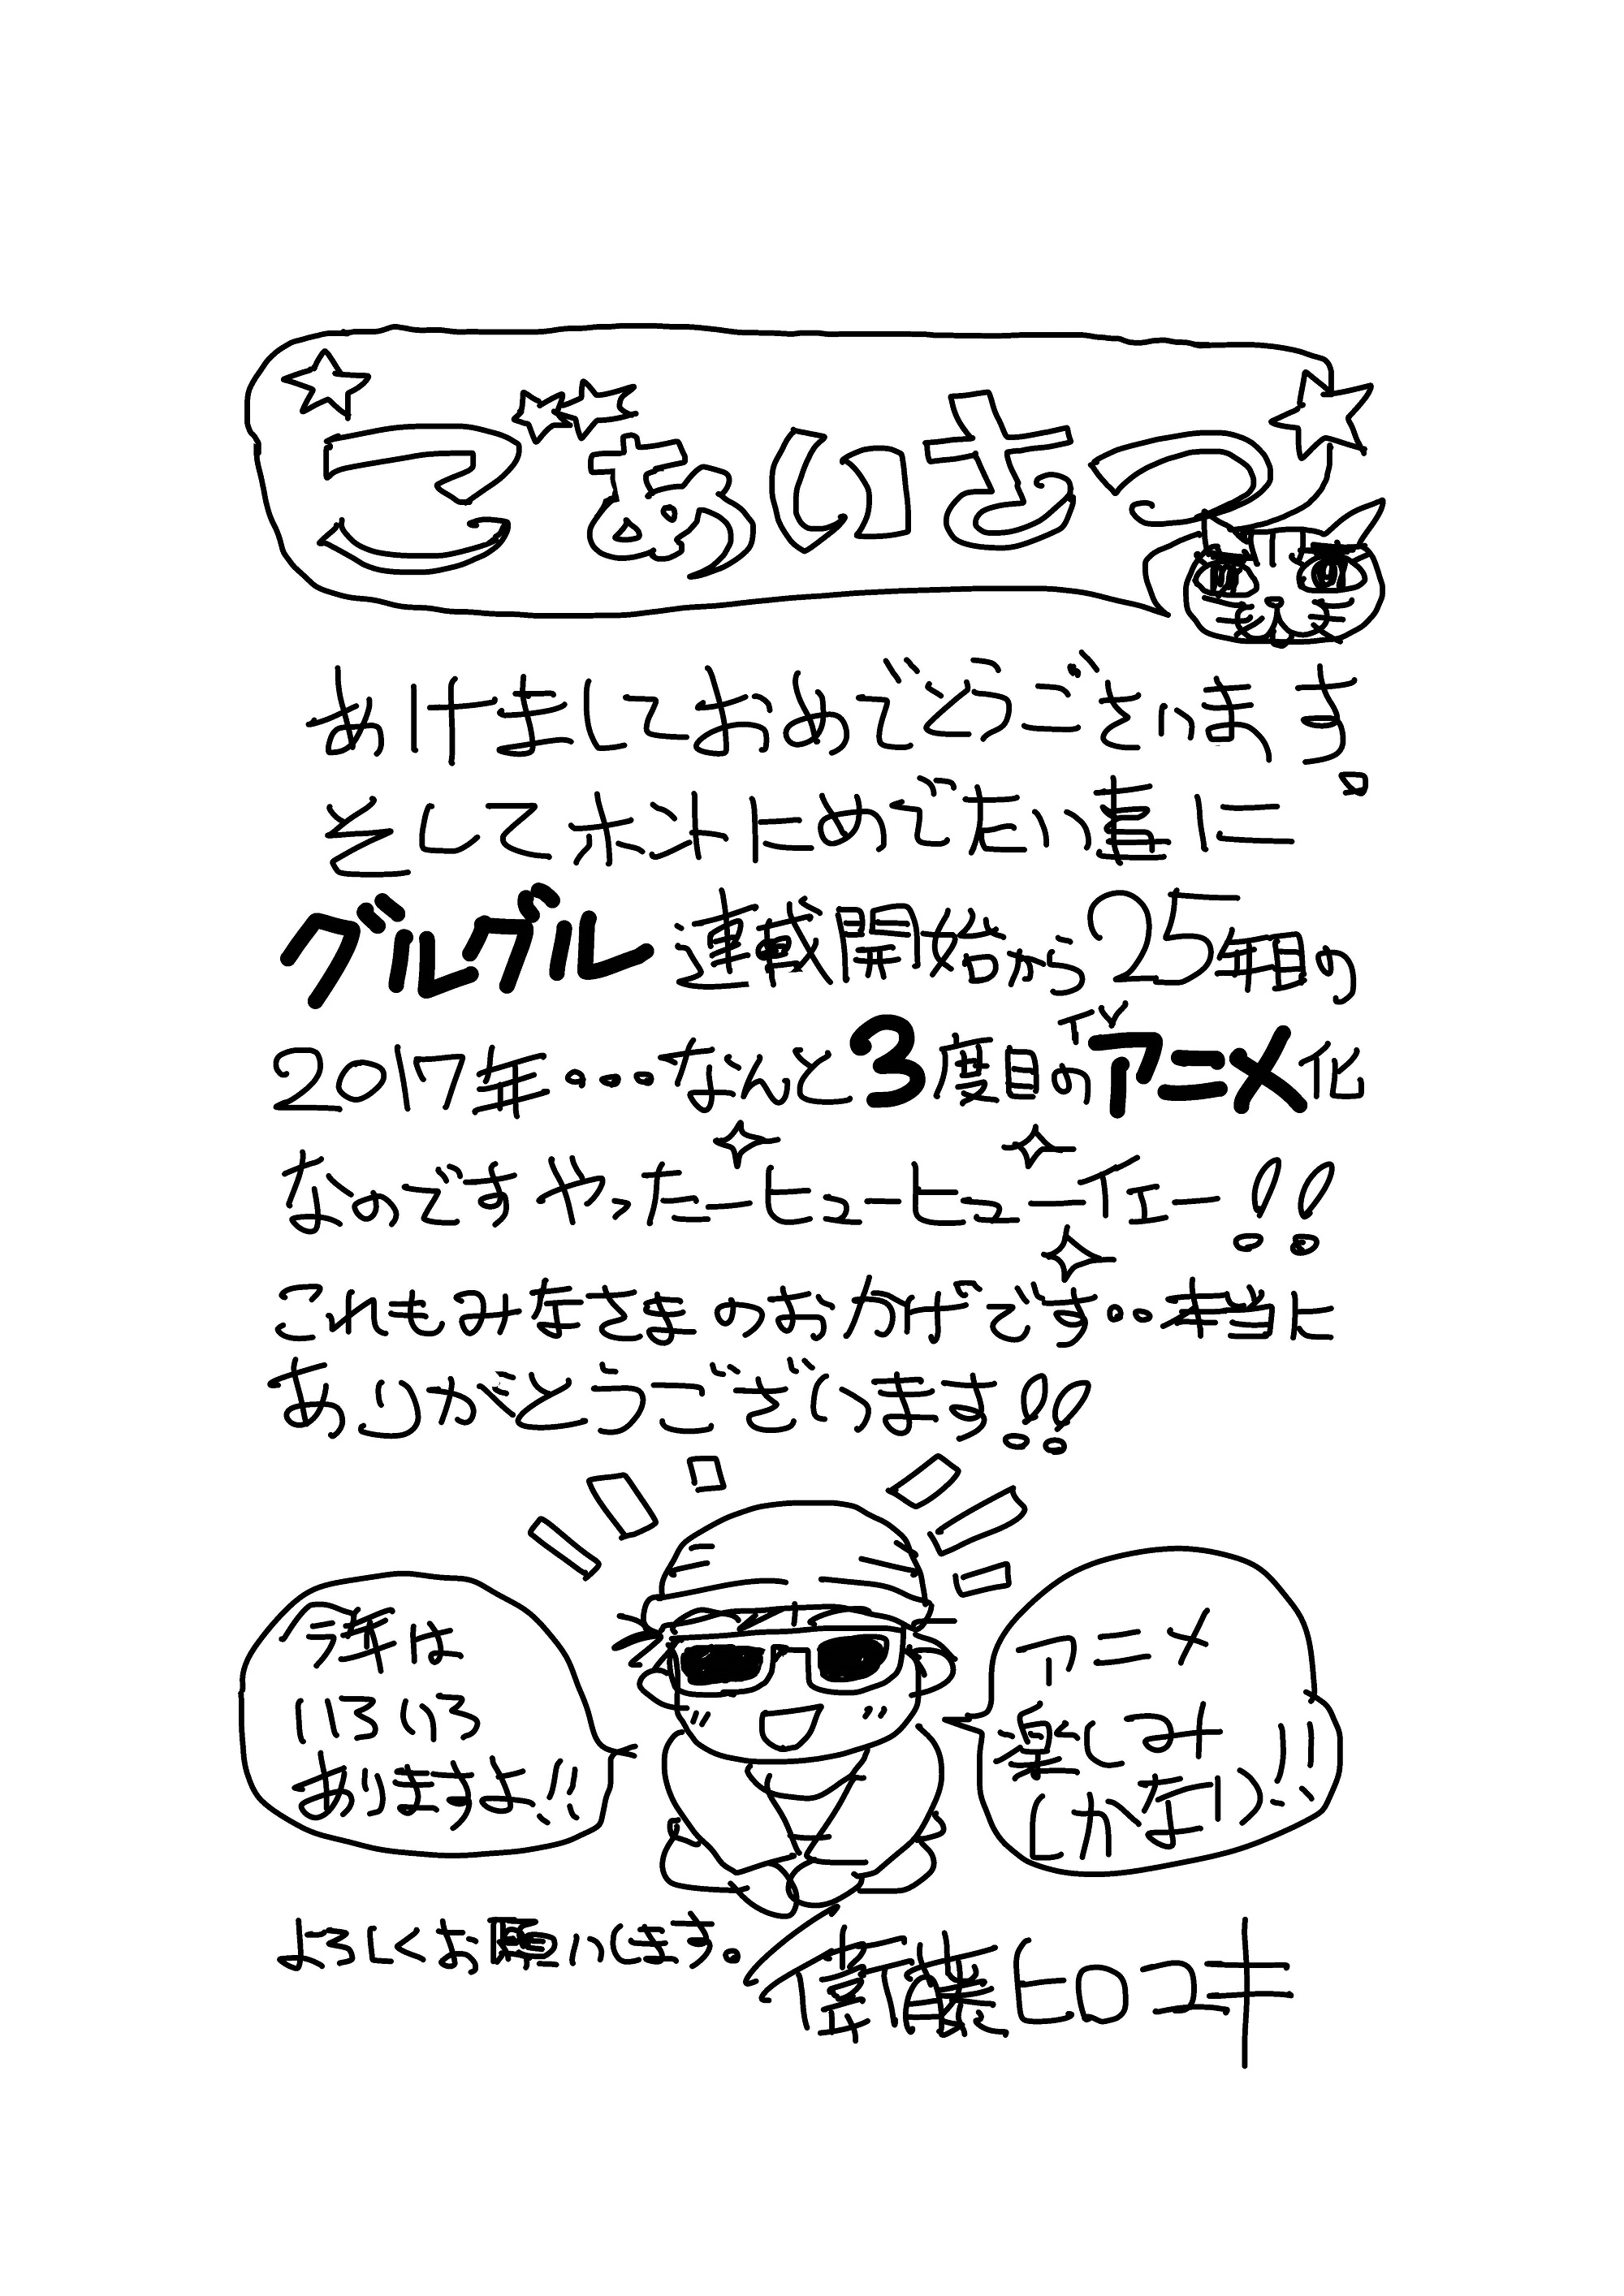 ごあいさつ
あけましておめでとうございます。
そしてホントにめでたい事に
グルグル連載開始から25年目の
2017年・・・なんと3度目のアニメ化
なのですやったーヒューヒューイエー!!
これもみなさまのおかげです・・本当に
ありがとうございます!!
今年は
いろいろ
ありますよ!!
アニメ
楽しみ
しかない!!
よろしくお願いします。
衛藤ヒロユキ